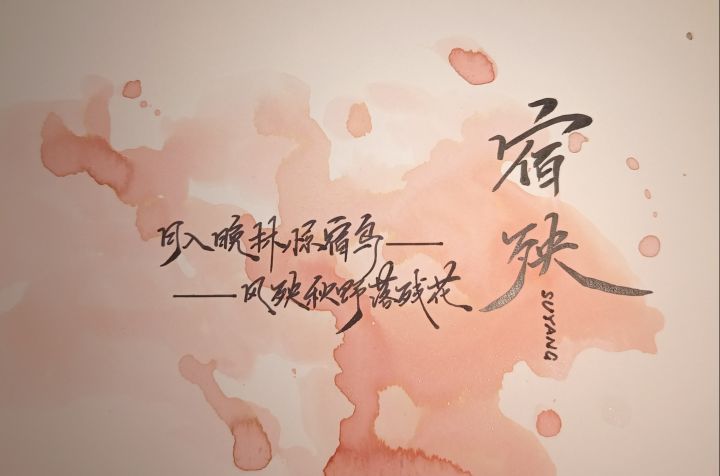 宿殃
SUYANG
月入晚林惊宿鸟——
——风殃秋野落残花